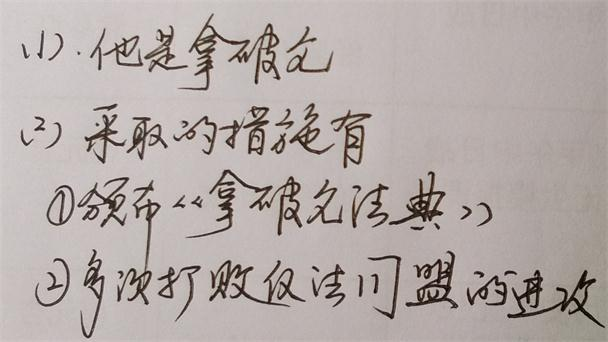 (1).他是拿破仑
(2) 采取的措施有
①颁布《拿破仑法典》
②多次打败反法同盟的进攻